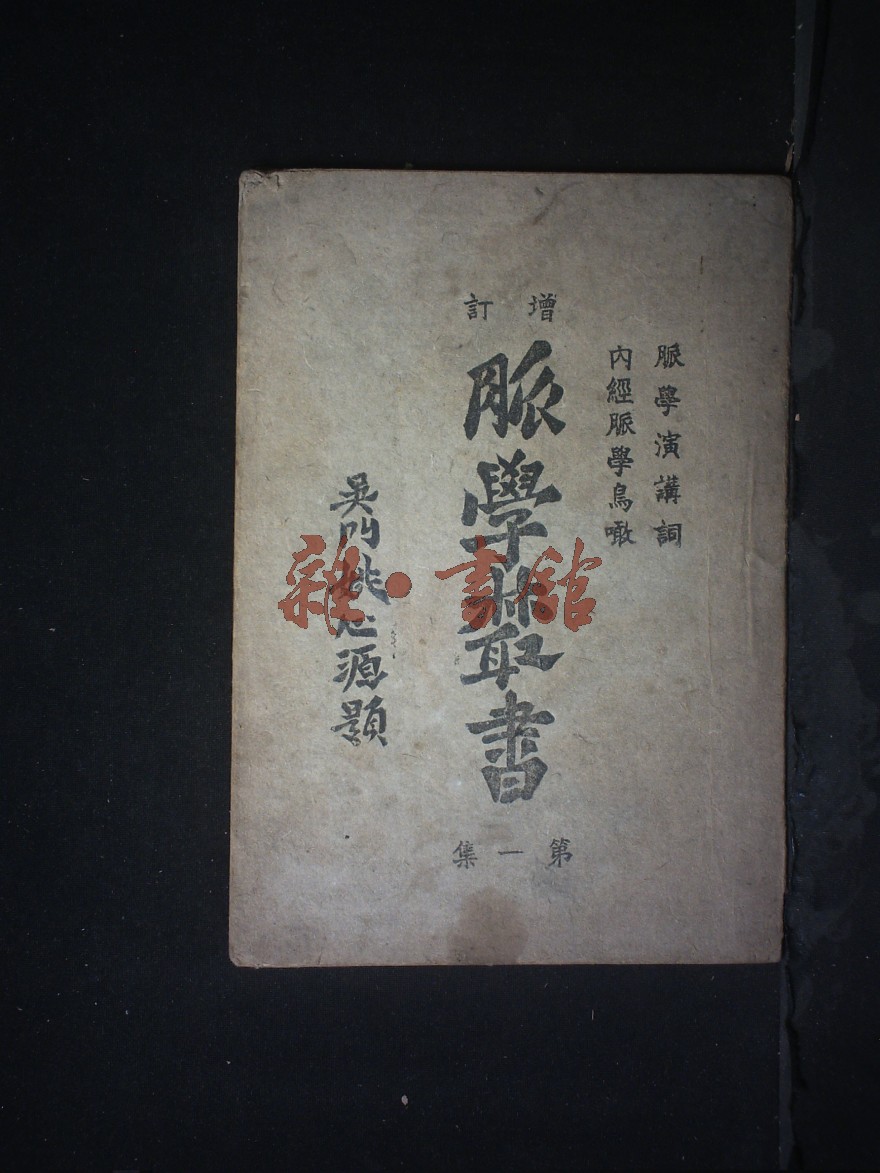 脈學演講詞
內經脈學鳥瞰
增訂
脈學叢書
第一集
吳門姚心源題
雜·書館